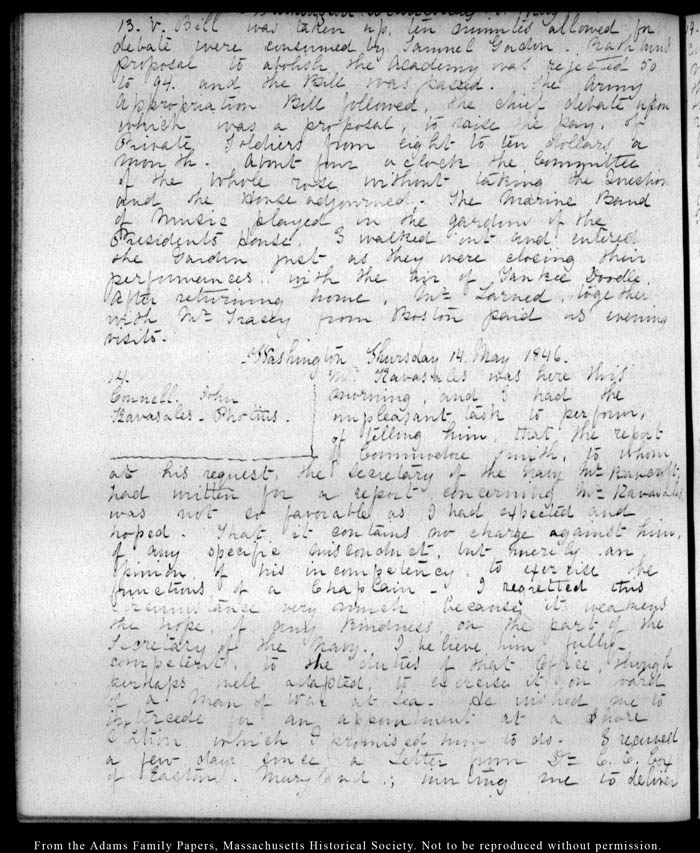 13. V. Bill was taken up, ten minutes allowed for
debate were consumed by Samuel Gordon. Rathbun's
proposal to abolish the Academy was rejected 50
to 94. and the Bill was passed. The Army
Appropriation Bill followed, the chief debate upon
which was a proposal, to raise the pay, of
Private Soldiers from eight to ten dollars a
month. About four o'clock the Committee
of the whole rose, without taking the Question
and the House adjourned. The Marine Band
of Music played in the garden of the
Presidents House. I walked out and entered
the Garden just as they were closing their
performances with the air of Yankee Doodle.
After returning home, Mr. Larned, together
with Mr Tracey from Boston paid us evening
visits.
Washington Thursday 14. May 1846.
14.
Connell. John
Kavasales. Photius.
Mr Kavasales was here this
morning, and I had the
unpleasant task to perform,
of telling him, that the report
of Commodore Smith, to whom
at his request, the Secretary of the Navy Mr Bancroft,
had written for a report concerning Mr Kavasales
was not so favorable as I had expected and
hoped. That it contains no charge against him,
of any specific misconduct, but merely an
opinion of his incompetency, to exercise the
functions of a Chaplain - I regretted this
circumstance very much because it weakens
the hope, of any kindness on the part of the
Secretary of the Navy. I believe him fully
competent, to the duties of that Office, though
perhaps well adapted, to exercise it on board
of a Man of War at Sea. He wished me to
intercede for an appointment at a Shore
Station which I promised him to do. I received
a few days since a Letter from Dr C. C. Cox
of Easton. Maryland; inviting me to deliver
From the Adams Family Papers, Massachusetts Historical Society. Not to be reproduced without permission.